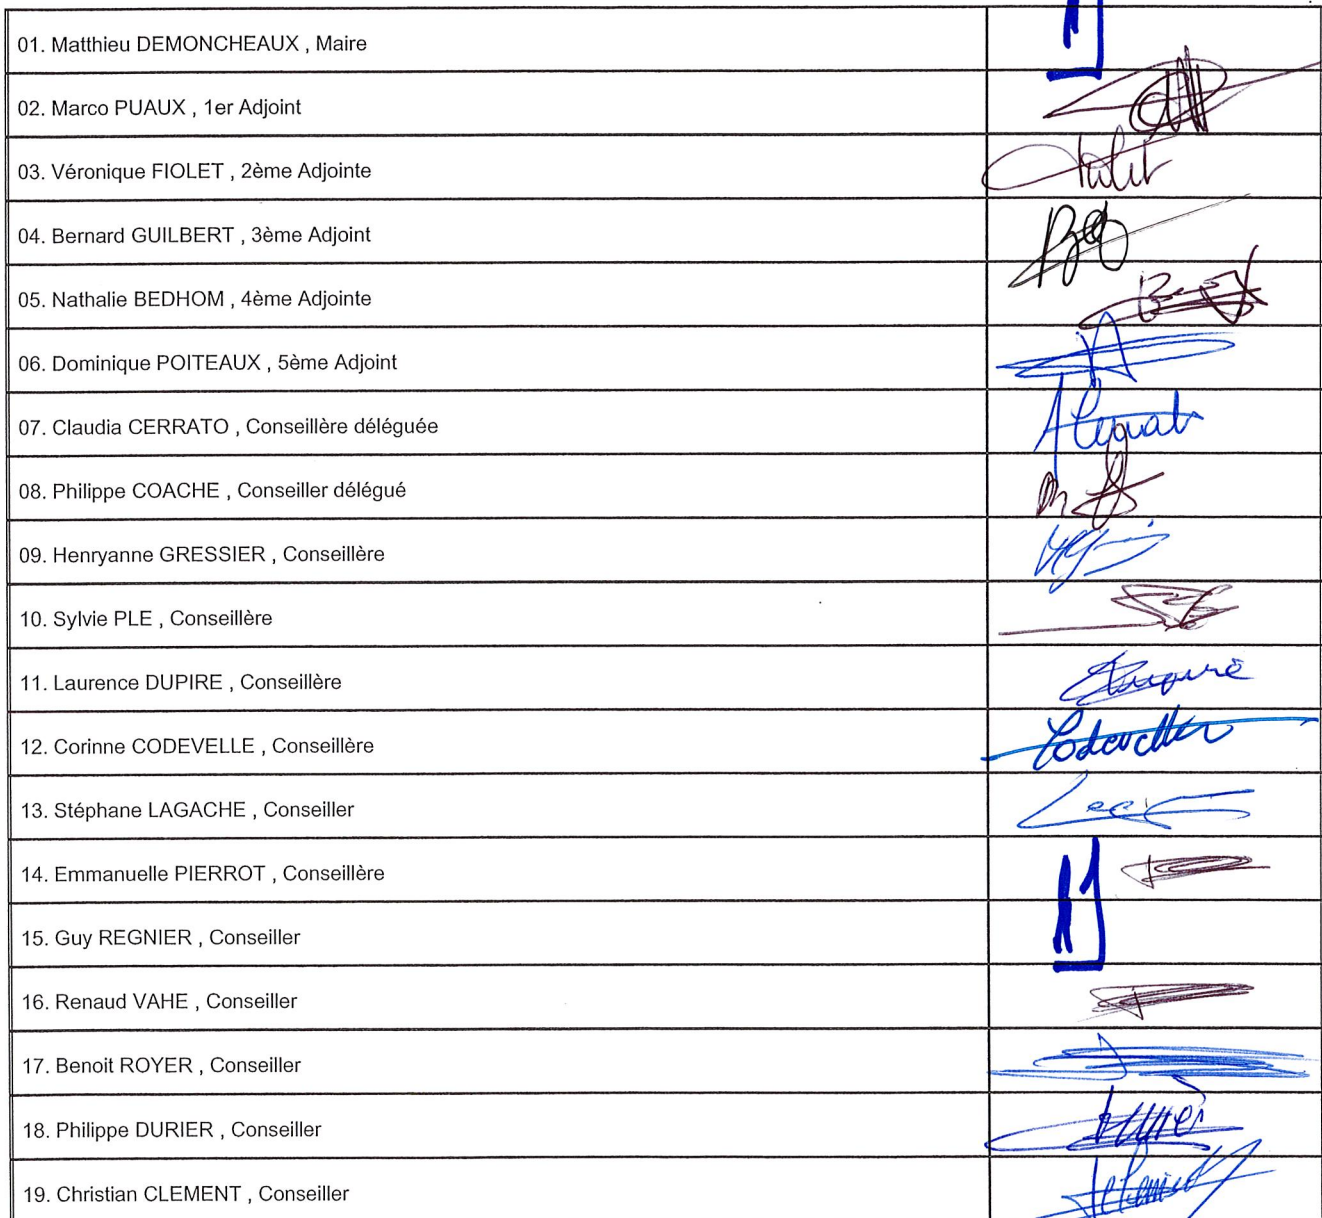 01. Matthieu DEMONCHEAUX , Maire
02. Marco PUAUX , 1er Adjoint
03. Véronique FIOLET , 2ème Adjointe
04. Bernard GUILBERT , 3ème Adjoint
05. Nathalie BEDHOM , 4ème Adjointe
06. Dominique POITEAUX , 5ème Adjoint
07. Claudia CERRATO , Conseillère déléguée
08. Philippe COACHE , Conseiller délégué
09. Henryanne GRESSIER , Conseillère
10. Sylvie PLE , Conseillère
11. Laurence DUPIRE , Conseillère
12. Corinne CODEVELLE , Conseillère
13. Stéphane LAGACHE , Conseiller
14. Emmanuelle PIERROT , Conseillère
15. Guy REGNIER , Conseiller
16. Renaud VAHE , Conseiller
17. Benoit ROYER , Conseiller
18. Philippe DURIER , Conseiller
19. Christian CLEMENT , Conseiller